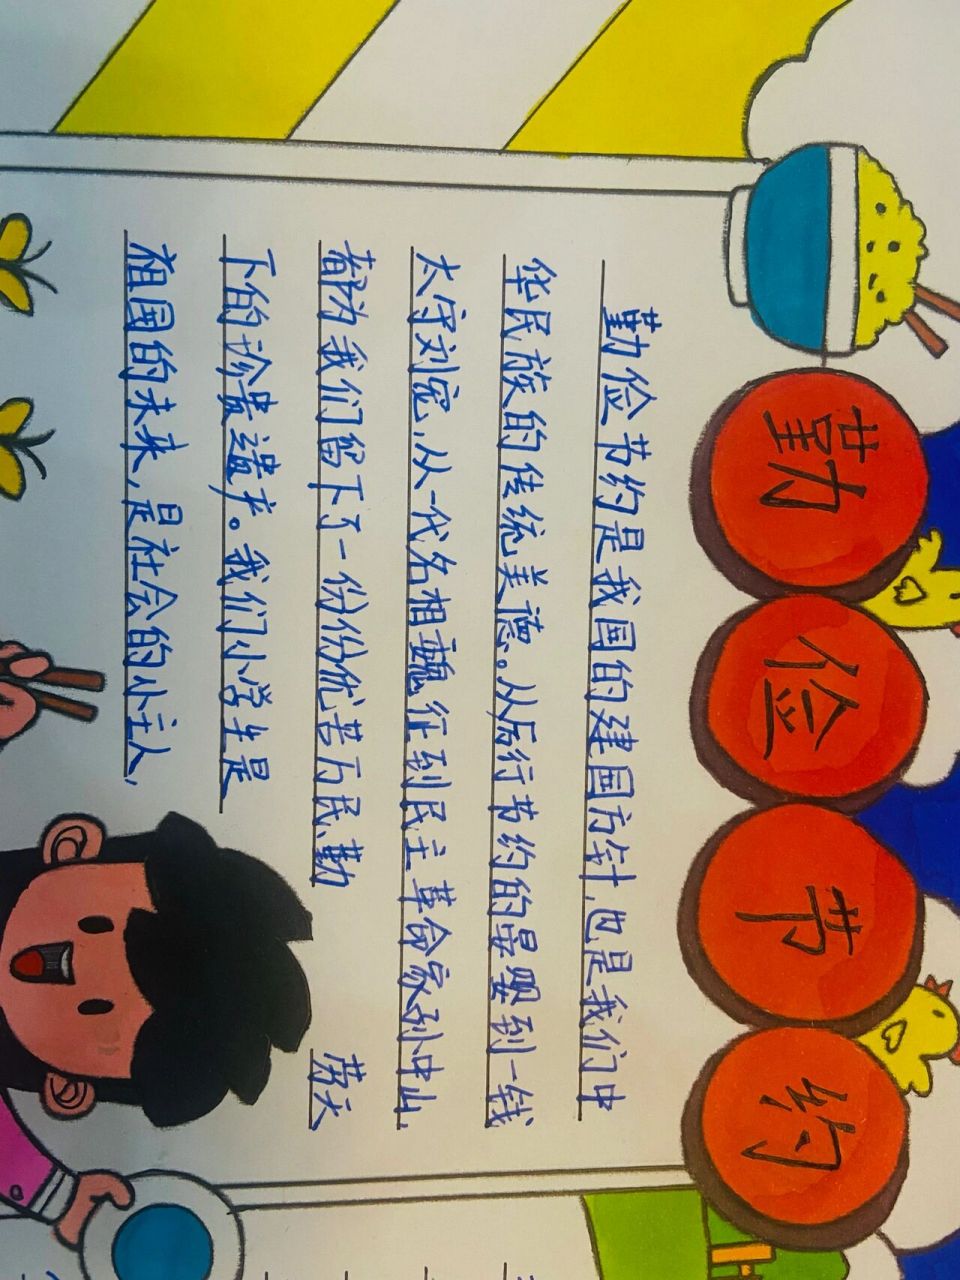 勤俭节约
勤俭节约是我国的建国方针,也是我们中
华民族的传统美德。从后行节约的晏婴到一钱
太守刘宠,从一代名相魏征到民主革命家孙中山,
都为我们留下了一份份优苦万民、勤 劳天
下的珍贵遗产。我们小学生是
祖国的未来,是社会的小主人,